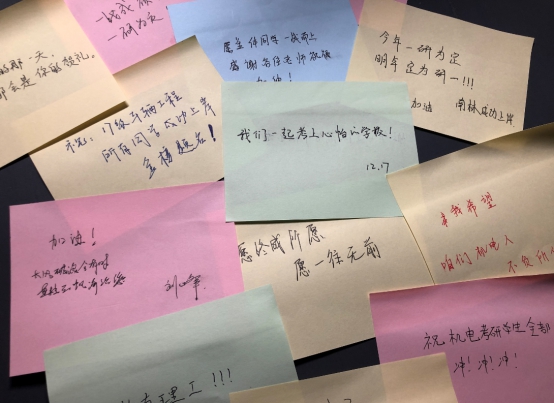 一战成硕
一研为定
的那一天,
会是你的婚礼。
愿全体同学一战而上
感谢各位老师祝福
加油!
今年一研为定
明年定为研一!!!
加油 南林成功上岸
祝:17级车辆工程
所有同学成功上岸
金榜题名!
我们一起考上心怡的学校!
12.17
加油!
愿终成所愿
愿一往无前
我希望
咱们机电人
不负所
祝机电考研学生全部
冲!冲!冲!
理工!!!